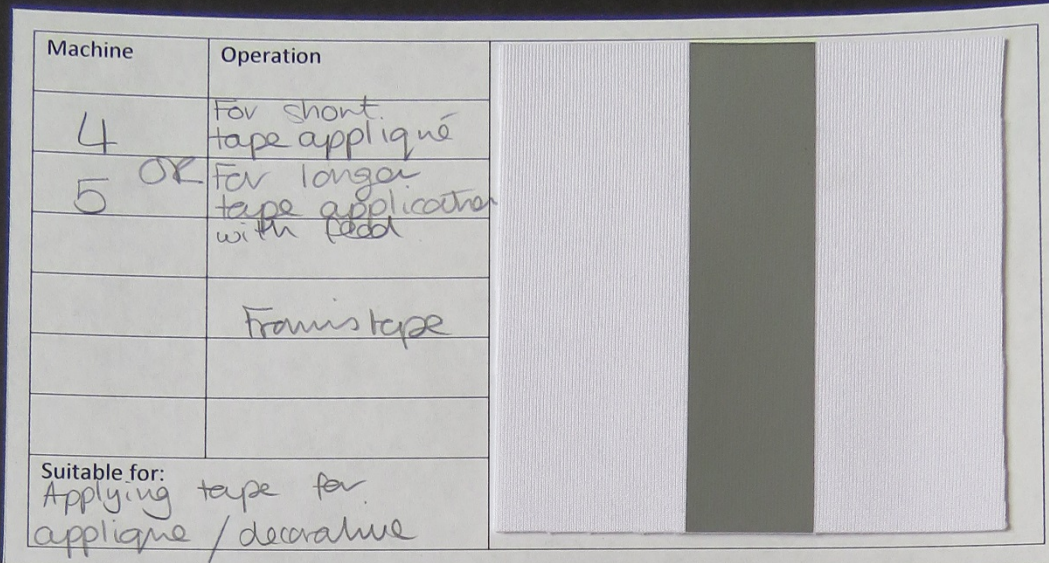 Machine Operation
4 For short
tape appliqué
OR For longer
5 tape application
with feed
Framis tape
Suitable for:
Applying tape for
applique / decorative